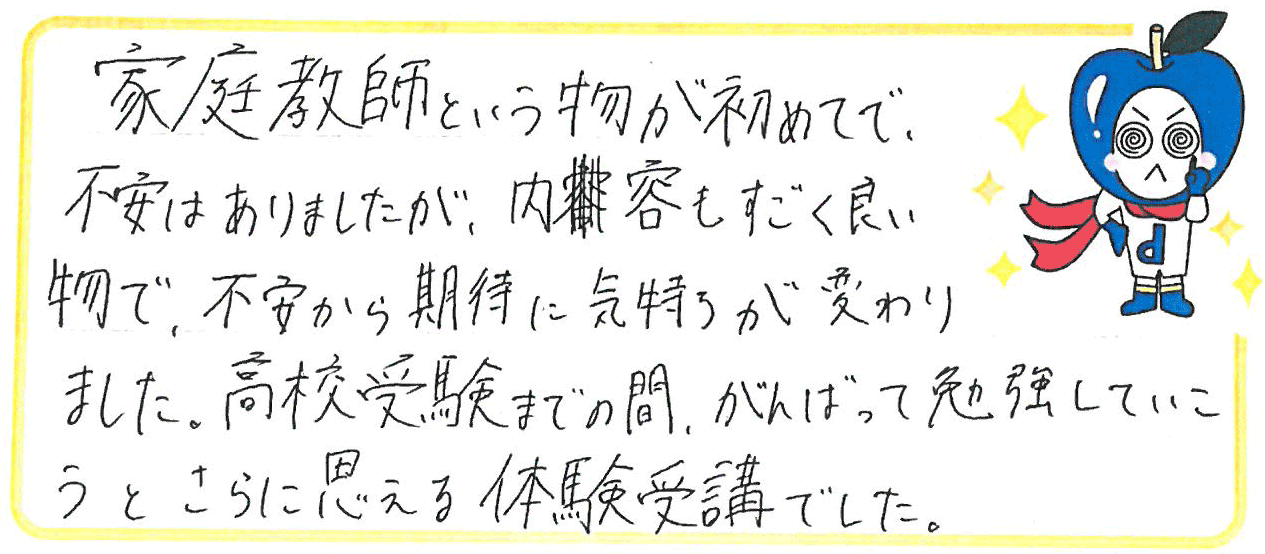 家庭教師という物が初めてで、
不安はありましたが、内容もすごく良い
物で、不安から期待に気持ちが変わり
ました。高校受験までの間、がんばって勉強していこ
うとさらに思える体験受講でした。
P